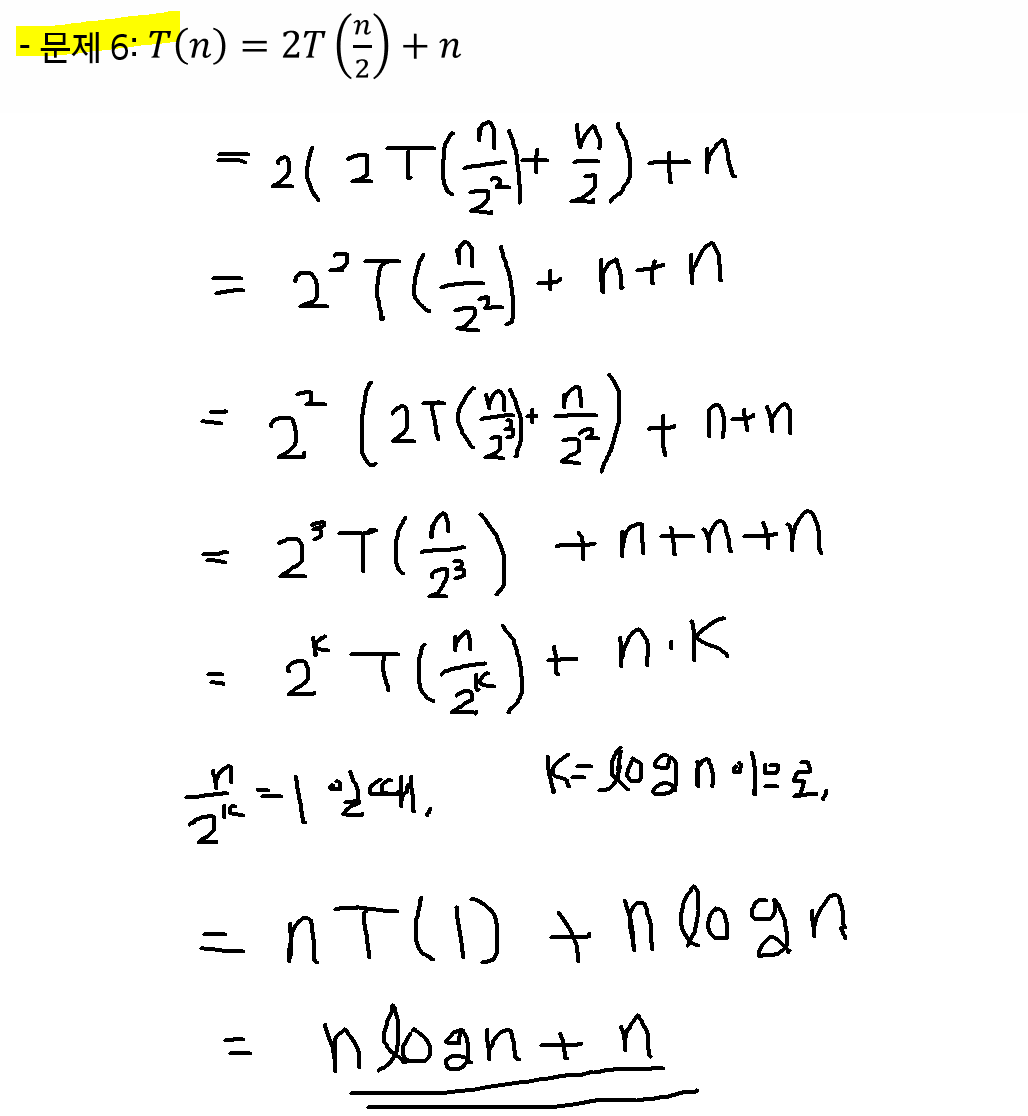 - 문제 6: T(n) = 2T(n/2) + n
= 2( 2T(n/2²)+ n/2 ) + n
= 2²T(n/2²) + n+n
= 2² (2T(n/2³)+ n/2²) + n+n
= 2³T(n/2³) +n+n+n
= 2ᴷT(n/2ᴷ) + n·K
n/2ᴷ =1 일때, K=logn 이므로,
= nT(1) + nlogn
= nlogn + n